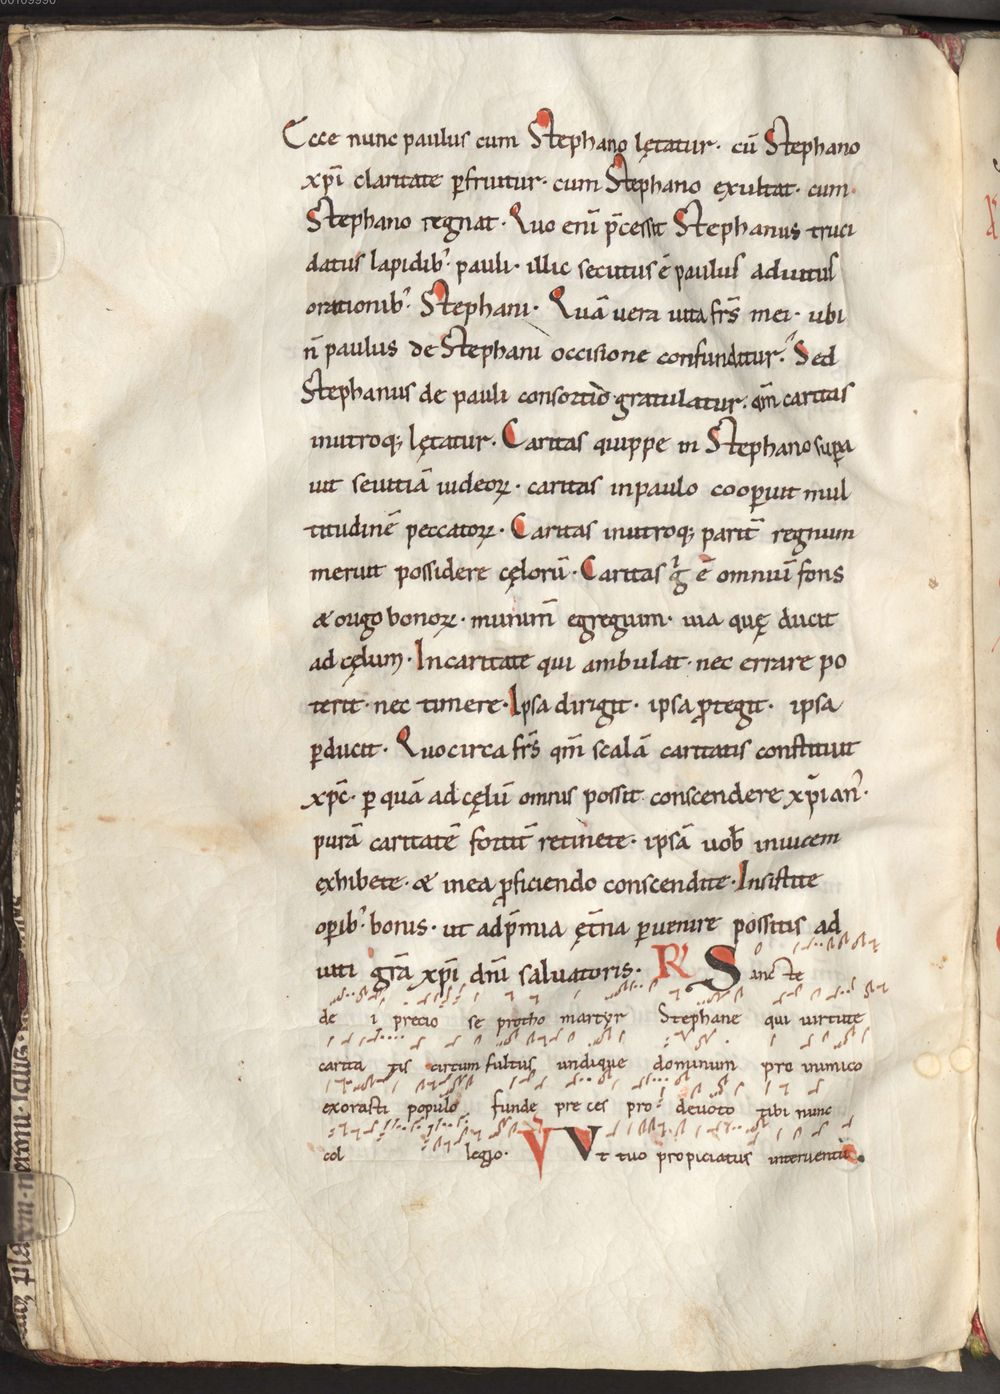 Ecce nunc paulus cum Stephano lętatur· cū Stephano
xp̄i claritate ꝑfruitur· cum Stephano exultat· cum
Stephano regnat· Quo enī p̄cessit Stephanus truci
datus lapidib᾽ pauli· illic secutus ē paulus adiutus
orationib᾽ Stephani· Quā uera uita fr̄s mei· ubi
n̄ paulus de Stephani occisione confunditur· Sed
Stephanus de pauli consortio gratulatur· qm̄ caritas
inutroq; lętatur· Caritas quippe in Stephano supera
uit seuitiā iudeoꝝ· caritas inpaulo cooꝑuit mul
titudinē peccatoꝝ· Caritas inutroq; parit̄ regnum
meruit possidere cęlorū· Caritas gͥ ē omniū fons
& origo bonoꝝ· munim̄ egregium· uia quę ducit
ad cęlum· Incaritate qui ambulat· nec errare po
terit· nec timere· Ipsa dirigit· ipsa ꝓtegit· ipsa
ꝑducit· Quocirca fr̄s qm̄ scalā caritatis constituit
xp̄c· ꝑ quā ad cęlū omnis possit conscendere xp̄ian᾽·
purā caritatē fortit̄ retinete· ipsā uob̄ inuicem
exhibete· & inea ꝓficiendo conscendite· Insistite
oꝑib᾽ bonis· ut adp̄mia ęt̄na ꝑuenire possitis ad
iuti gr̄a xp̄i dn̄i saluatoris· R̸ Sancte
de i precio se protho martyr Stephane qui uirtute
carita tis circum fultus undique dominum pro inimico
exorasti populo funde preces pro deuoto tibi nunc
col legio· V Vt tuo propiciatus interuentu·